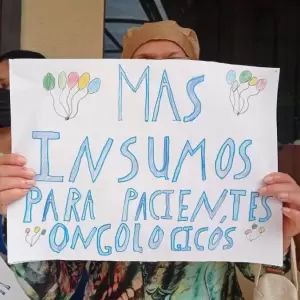 MAS
INSUMOS
PARA PACIENTES
ONGOLOGICOS